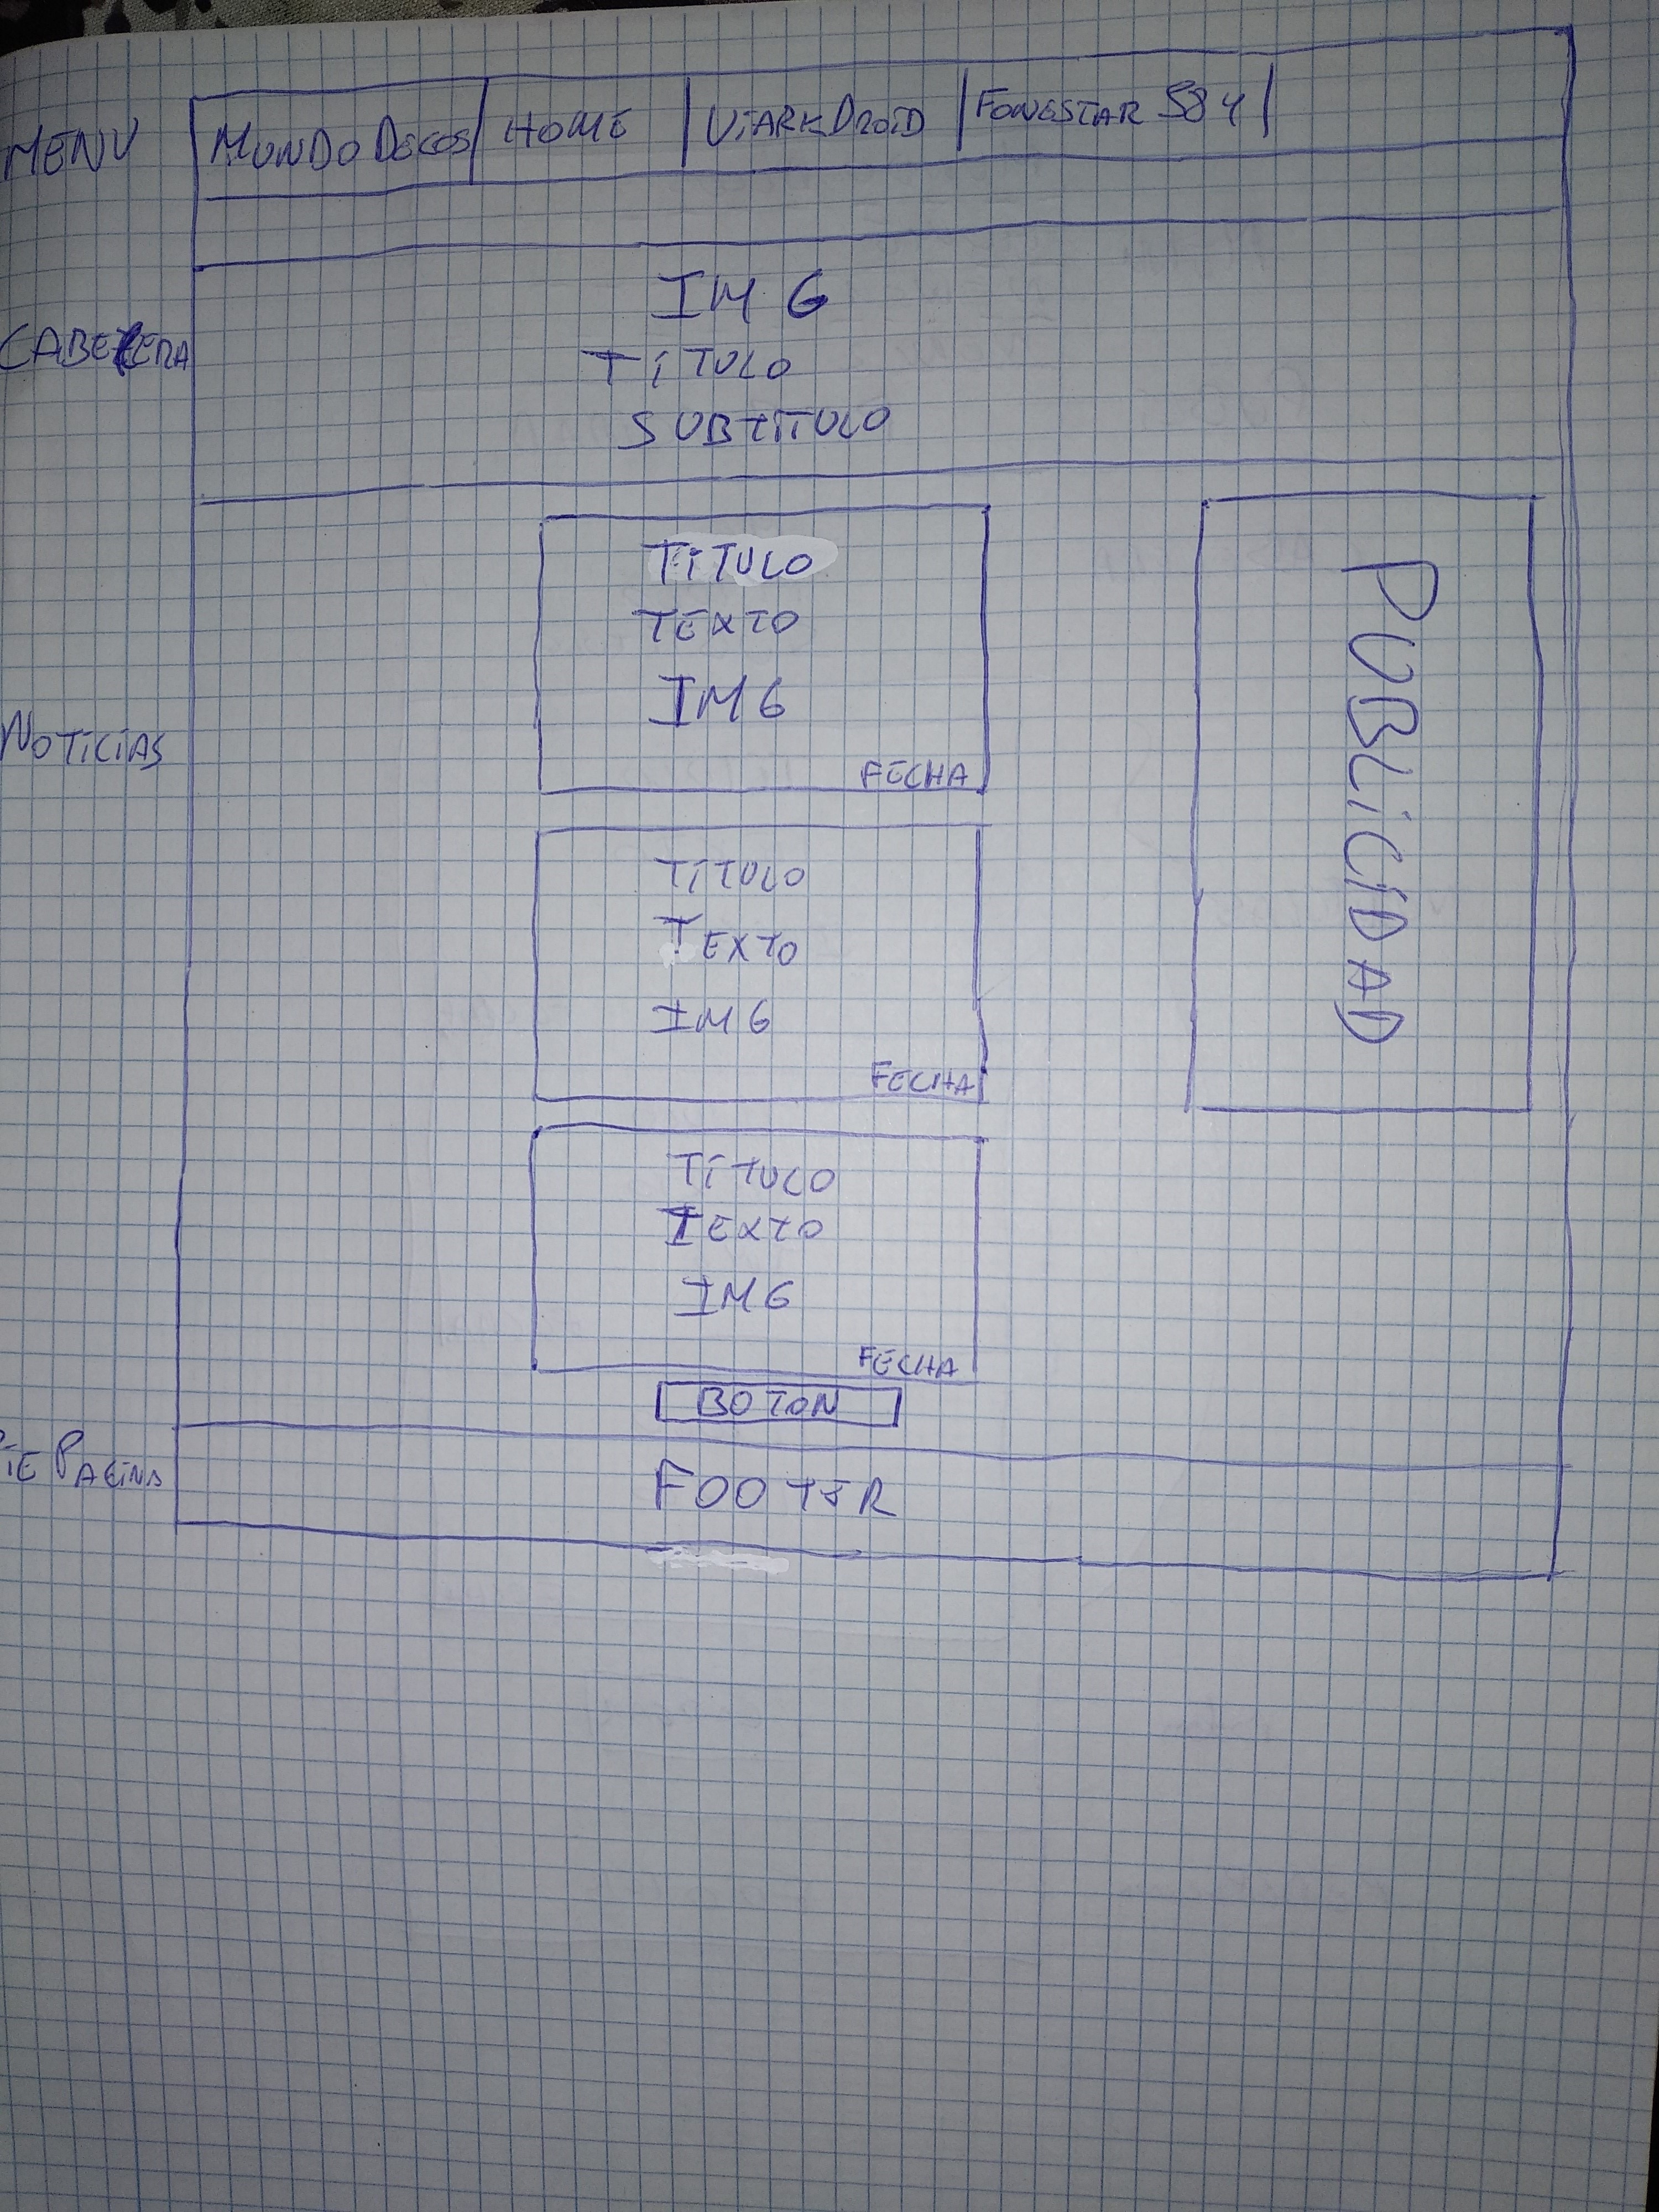 MENU MUNDO DECOS HOME ViARK DROiD FONESTAR 584
CABEZERA
IMG
TÍTULO
SUBTÍTULO
NOTICIAS
TÍTULO
TEXTO
IMG
FECHA
TÍTULO
TEXTO
IMG
FECHA
TÍTULO
TEXTO
IMG
FECHA
BOTON
PUBLiCIDAD
PIE PAGINA
FOOTER